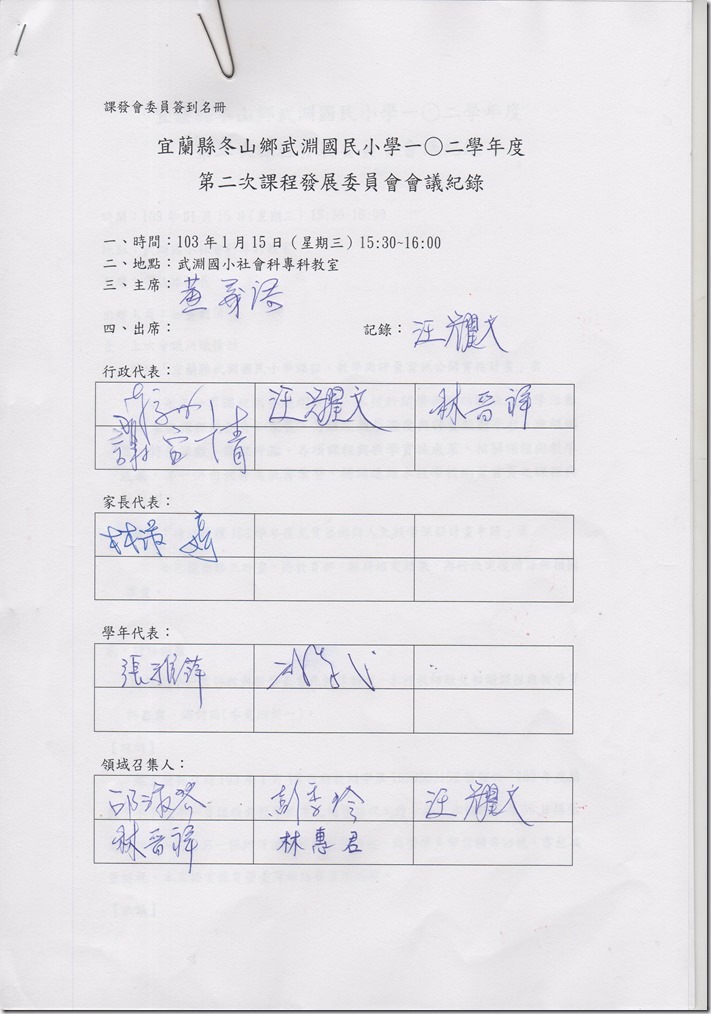 課發會委員簽到名冊
宜蘭縣冬山鄉武淵國民小學一〇二學年度
第二次課程發展委員會會議紀錄
一、時間：103 年 1 月 15 日（星期三）15:30~16:00
二、地點：武淵國小社會科專科教室
三、主席：
四、出席： 記錄：汪耀文
行政代表：
汪耀文 林晉祥
家長代表：
學年代表：
張雅鋒
領域召集人：
邱淑芬 彭季玲 汪耀文
林晉祥 林專君